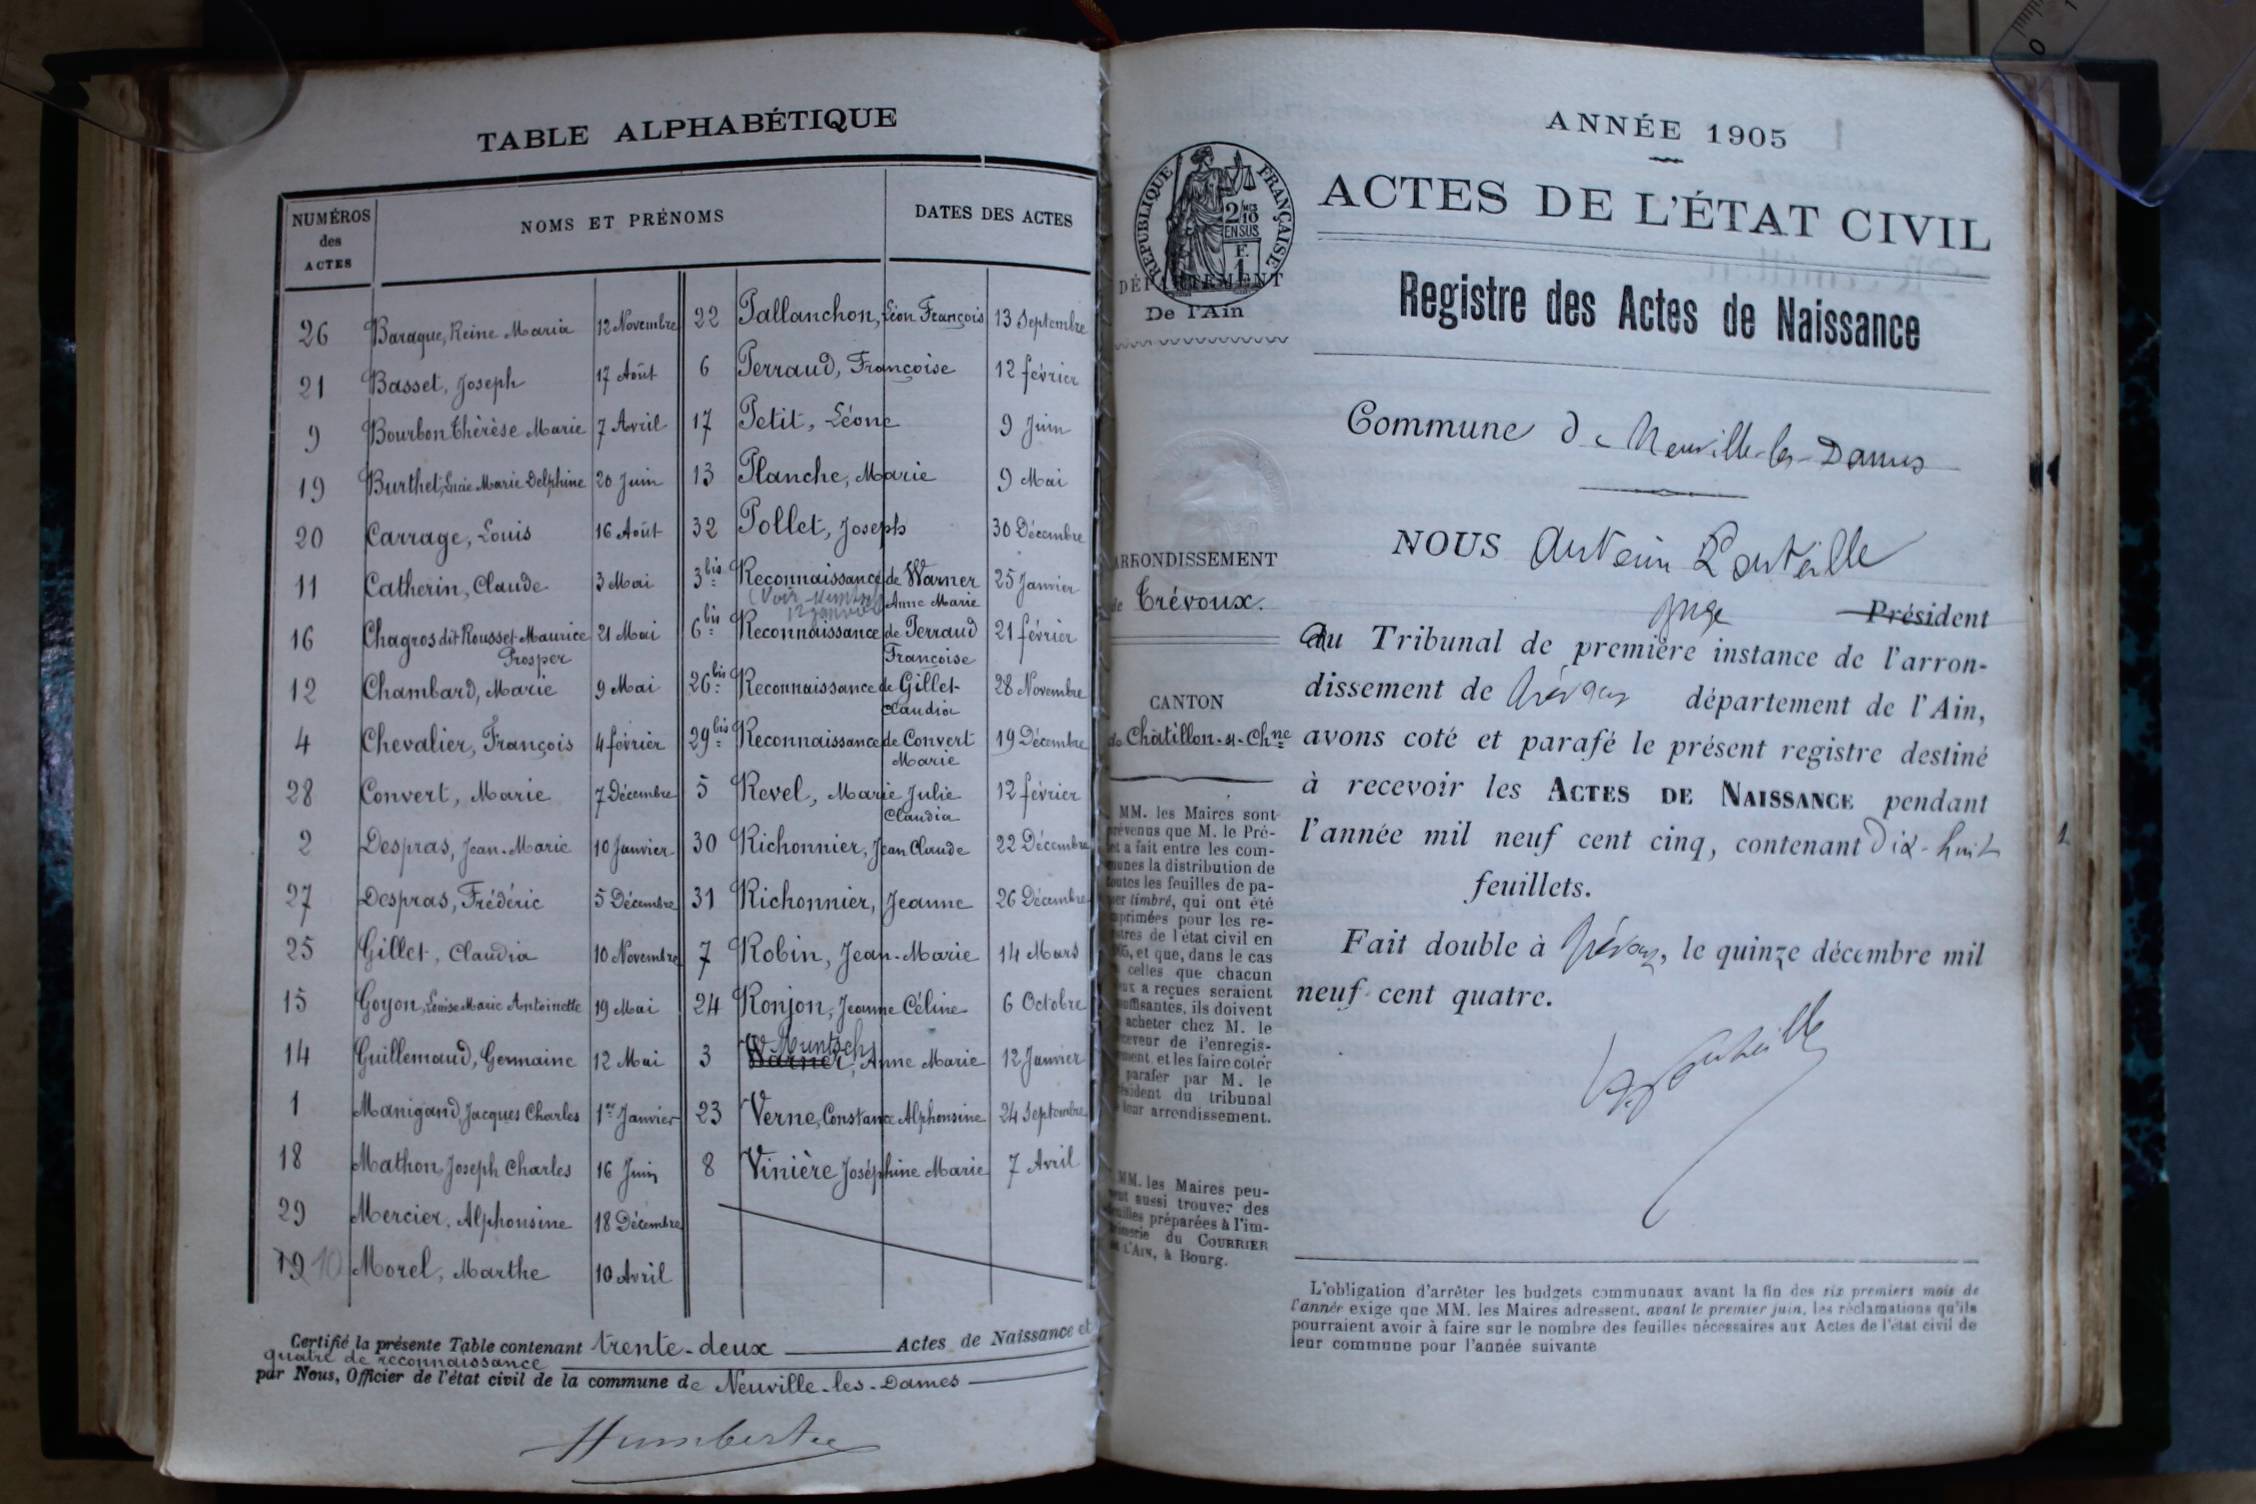 TABLE ALPHABÉTIQUE
NUMÉROS des ACTES
NOMS ET PRÉNOMS
DATES DES ACTES
26 Baraque, Reine Maria 12 Novembre
21 Basset, Joseph 17 Août
9 Bourbon Thérèse Marie 7 Avril
19 Burthet, Lucie Marie Delphine 20 Juin
20 Carrage, Louis 16 Août
11 Catherin, Claude 3 Mai
16 Chagros dit Rousset Maurice 21 Mai
Prosper
12 Chambard, Marie 9 Mai
4 Chevalier, François 4 février
28 Convert, Marie 7 Décembre
2 Despras, Jean-Marie 10 Janvier
27 Despras, Frédéric 5 Décembre
25 Gillet, Claudia 10 Novembre
15 Goyon, Louise Marie Antoinette 19 Mai
14 Guillemaud, Germaine 12 Mai
1 Manigand, Jacques Charles 1er Janvier
18 Mathon Joseph Charles 16 Juin
29 Mercier, Alphonsine 18 Décembre
19 10 Morel, Marthe 10 Avril
22 Pallanchon, Léon François 13 Septembre
6 Perraud, Françoise 12 février
17 Petit, Léone 9 Juin
13 Planche, Marie 9 Mai
32 Pollet, Joseph 30 Décembre
3 bis Reconnaissance de Warner 25 Janvier
Anne Marie
(Voir Muntsch
12 janvier)
6 bis Reconnaissance de Perraud 21 février
Françoise
26 bis Reconnaissance de Gillet 28 Novembre
Claudia
29 bis Reconnaissance de Convert 19 Décembre
Marie
5 Revel, Marie Julie 12 février
Claudia
30 Richonnier, Jean Claude 22 Décembre
31 Richonnier, Jeanne 26 Décembre
7 Robin, Jean-Marie 14 Mars
24 Ronjon, Jeanne Céline 6 Octobre
Muntsch
3 Warner, Anne Marie 12 Janvier
23 Verne, Constance Alphonsine 24 Septembre
8 Vinière Joséphine Marie 7 Avril
Certifié la présente Table contenant trente-deux Actes de Naissance et
quatre de reconnaissance
par Nous, Officier de l'état civil de la commune de Neuville-les-Dames
ANNÉE 1905
ACTES DE L'ÉTAT CIVIL
RÉPUBLIQUE FRANÇAISE
2/10 MES
EN SUS
F.
1
DÉPARTEMENT
De l'Ain
Registre des Actes de Naissance
Commune de Neuville-les-Dames
ARRONDISSEMENT
de Trévoux.
CANTON
de Châtillon-s-Chne
MM. les Maires sont
prévenus que M. le Pré-
fet a fait entre les com-
munes la distribution de
toutes les feuilles de pa-
pier timbré, qui ont été
imprimées pour les re-
gistres de l'état civil en
1905, et que, dans le cas
où celles que chacun
d'eux a reçues seraient
insuffisantes, ils doivent
en acheter chez M. le
Receveur de l'enregis-
trement, et les faire coter
et parafer par M. le
Président du tribunal
de leur arrondissement.
MM. les Maires peu-
vent aussi trouver des
feuilles préparées à l'im-
primerie du COURRIER
DE L'AIN, à Bourg.
NOUS Antonin Lauteille
Juge Président
du Tribunal de première instance de l'arron-
dissement de Trévoux département de l'Ain,
avons coté et parafé le présent registre destiné
à recevoir les ACTES DE NAISSANCE pendant
l'année mil neuf cent cinq, contenant Dix-huit
feuillets.
Fait double à Trévoux, le quinze décembre mil
neuf cent quatre.
L'obligation d'arrêter les budgets communaux avant la fin des six premiers mois de
l'année exige que MM. les Maires adressent, avant le premier juin, les réclamations qu'ils
pourraient avoir à faire sur le nombre des feuilles nécessaires aux Actes de l'état civil de
leur commune pour l'année suivante